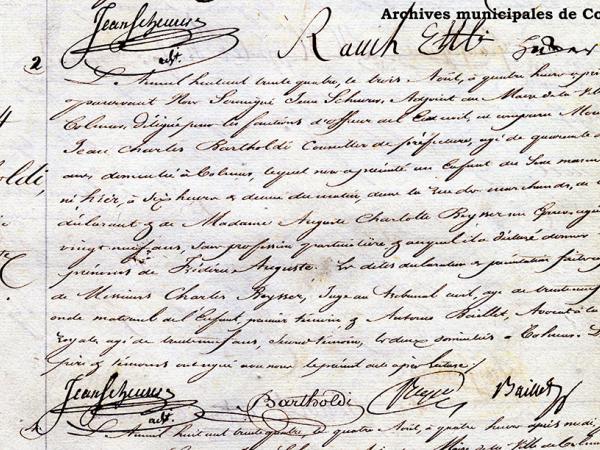 Archives municipales de Co
Jean Scheurer
adjt.
Rauch Etti
2
L'an mil huit cent trente quatre, le trois Août, à quatre heures après
pardevant Nous Soussigné Jean Scheurer, Adjoint au Maire de la Ville
Colmar, délégué pour les fonctions d'officier de l'Etat civil, est comparu
Jean Charles Bartholdi Conseiller de préfecture, agé de quarante
ans, domicilié à Colmar, lequel nous a présenté un Enfant du Sexe mascu
né hier, à Six heures & demie du matin, dans la rue des marchands, de
déclarant & de Madame Auguste Charlotte Beysser son Epouse, agée
vingt neuf ans, San profession particulière & auquel il a déclaré donner
prénoms de Fréderic Auguste. Les dites déclaration & présentation faites
de Messieurs Charles Beysser, Juge au tribunal civil, agé de trente
oncle maternel de l'Enfant, premier témoin, & Antoine Baillet, Avocat à la
royale, agé de ans, Second témoin, les deux domiciliés à Colmar.
père & témoins ont signé avec nous le présent acte après lecture.
oldi,
Jean Scheurer
adjt.
Bartholdi
Beysser
Baillet
L'an mil huit cent trente quatre, le quatre Août, à quatre heures après midi,
Maire de la Ville de Colmar